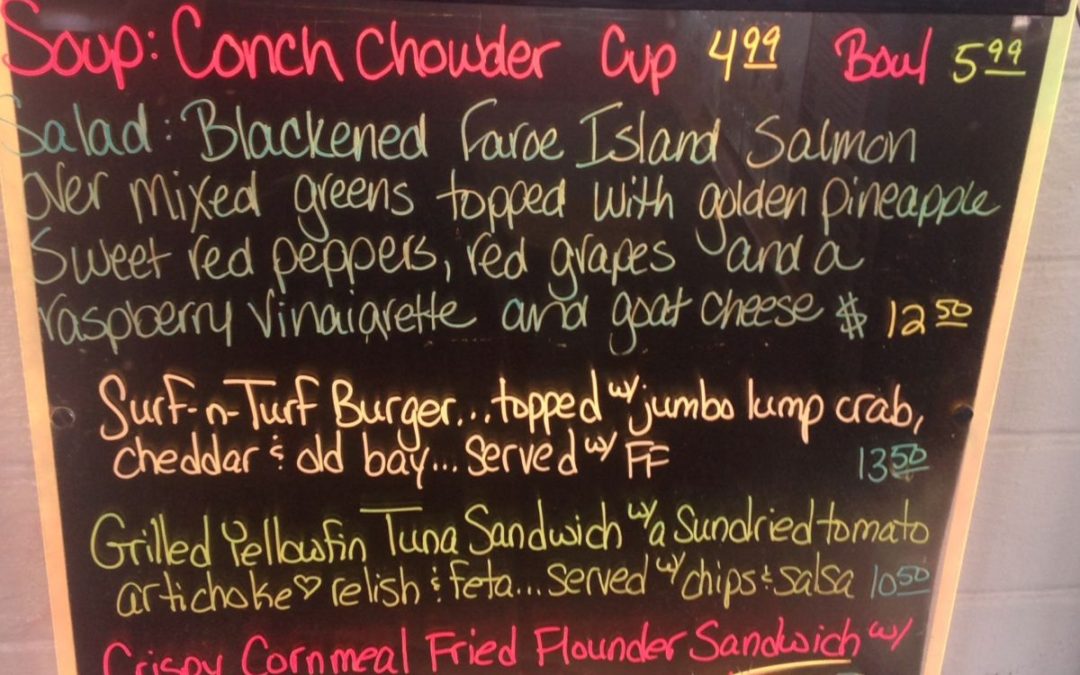 Soup: Conch Chowder Cup 4.99 Bowl 5.99
Salad: Blackened Faroe Island Salmon
over mixed greens topped with golden pineapple
Sweet red peppers, red grapes and a
raspberry vinaigrette and goat cheese $ 12 50
Surf-n-Turf Burger... topped w/ jumbo lump crab,
cheddar & old bay... served w/ FF 13 50
Grilled Yellowfin Tuna Sandwich w/a Sundried tomato
artichoke♡ relish & feta... served w/ chips & salsa 10 50
Crispy Cornmeal Fried Flounder Sandwich w/